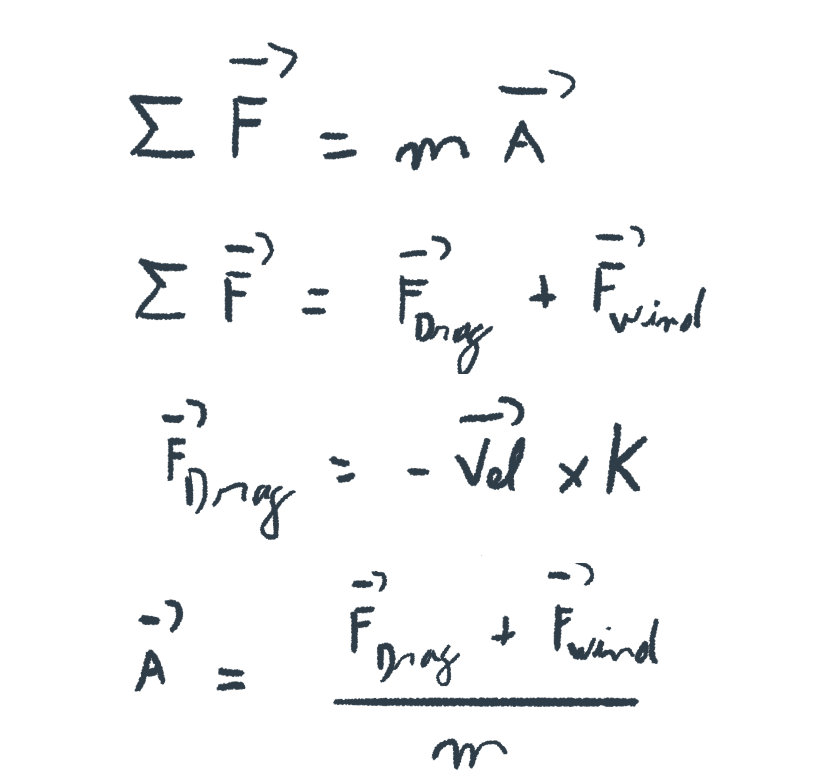 ∑ F⃗ = m A⃗
∑ F⃗ = F⃗Drag + F⃗wind
F⃗Drag = - V⃗el × K
A⃗ = F⃗Drag + F⃗wind
m